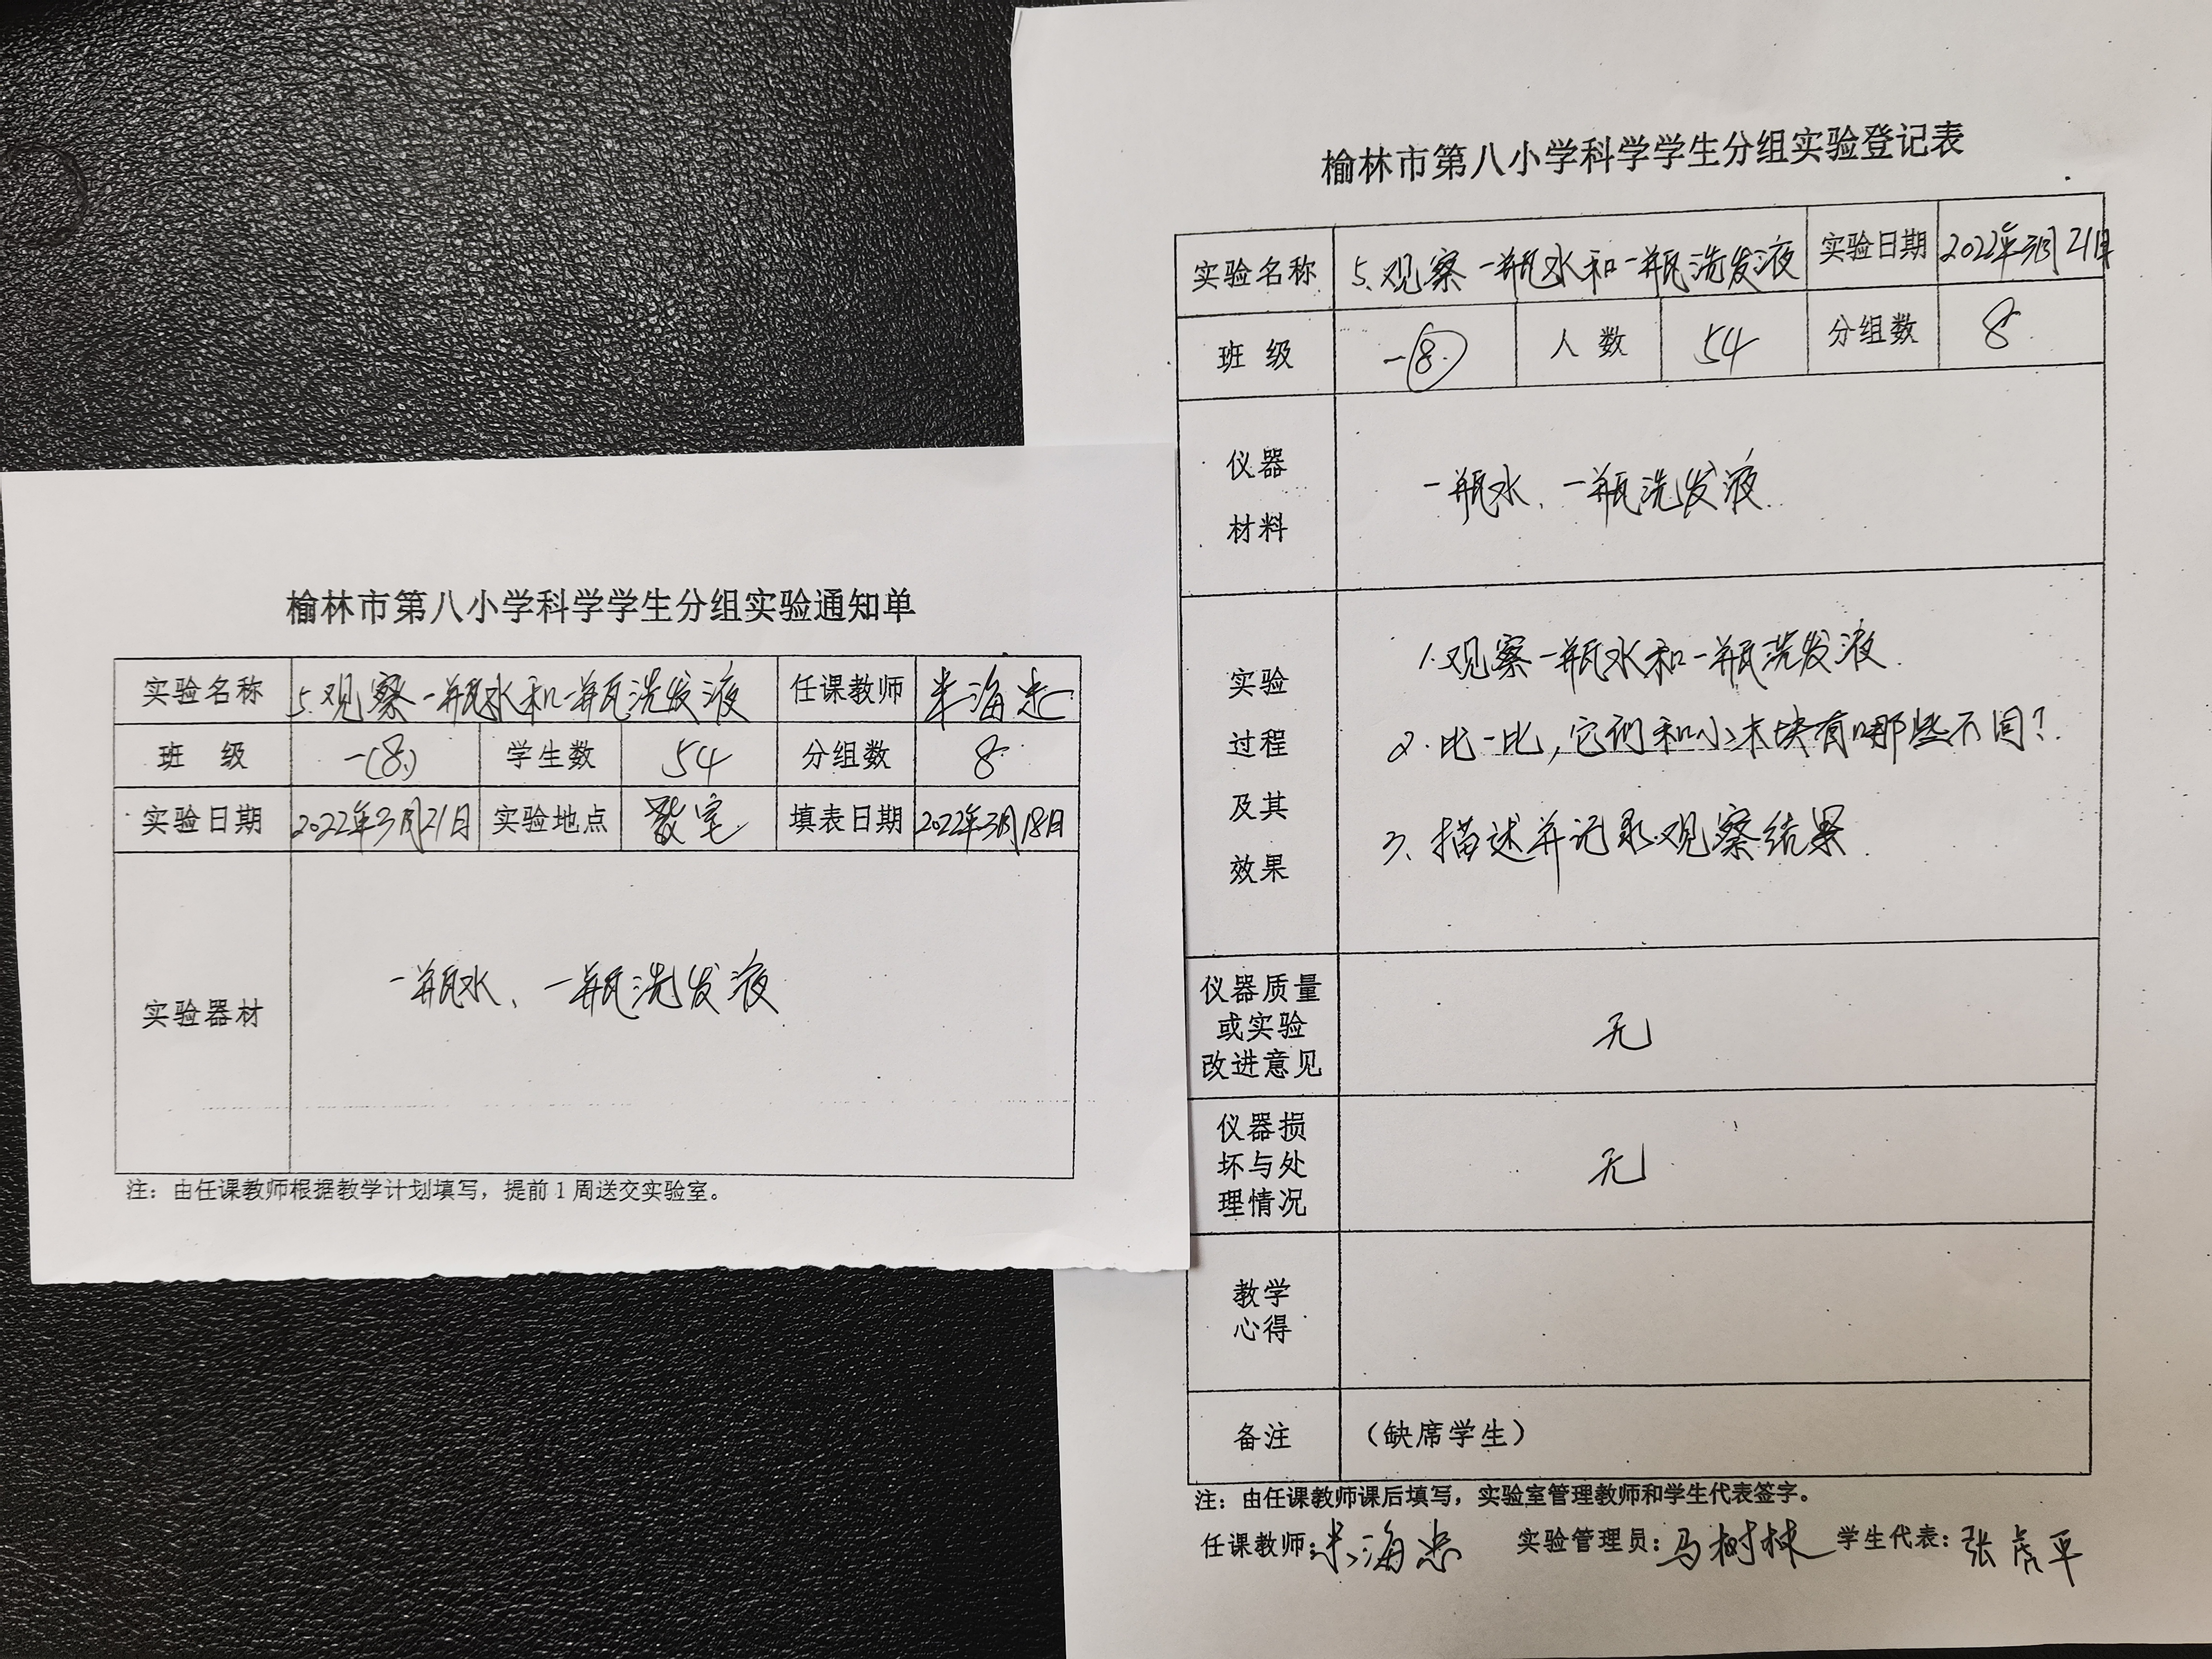 榆林市第八小学科学学生分组实验通知单
实验名称 5.观察一瓶水和一瓶洗发液 任课教师 米海忠
班 级 一(8.) 学生数 54 分组数 8
实验日期 2022年3月21日 实验地点 教室 填表日期 2022年3月18日
实验器材 一瓶水、一瓶洗发液
注：由任课教师根据教学计划填写，提前1周送交实验室。
榆林市第八小学科学学生分组实验登记表
实验名称 5.观察一瓶水和一瓶洗发液 实验日期 2022年3月21日
班 级 一(8.) 人 数 54 分组数 8
仪器
材料
一瓶水、一瓶洗发液.
实验
过程
及其
效果
1.观察一瓶水和一瓶洗发液.
2.比一比,它们和小木块有哪些不同?
3、描述并记录观察结果.
仪器质量
或实验
改进意见
无
仪器损
坏与处
理情况
无
教学
心得
备注 （缺席学生）
注：由任课教师课后填写，实验室管理教师和学生代表签字。
任课教师:米海忠 实验管理员:马树林 学生代表:张虎平